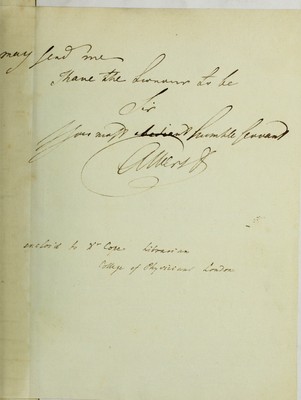 may send me
I have the honour to be
Sir
Your most obedient humble servant
enclos'd to Dr Cope Librarian
College of Physicians London